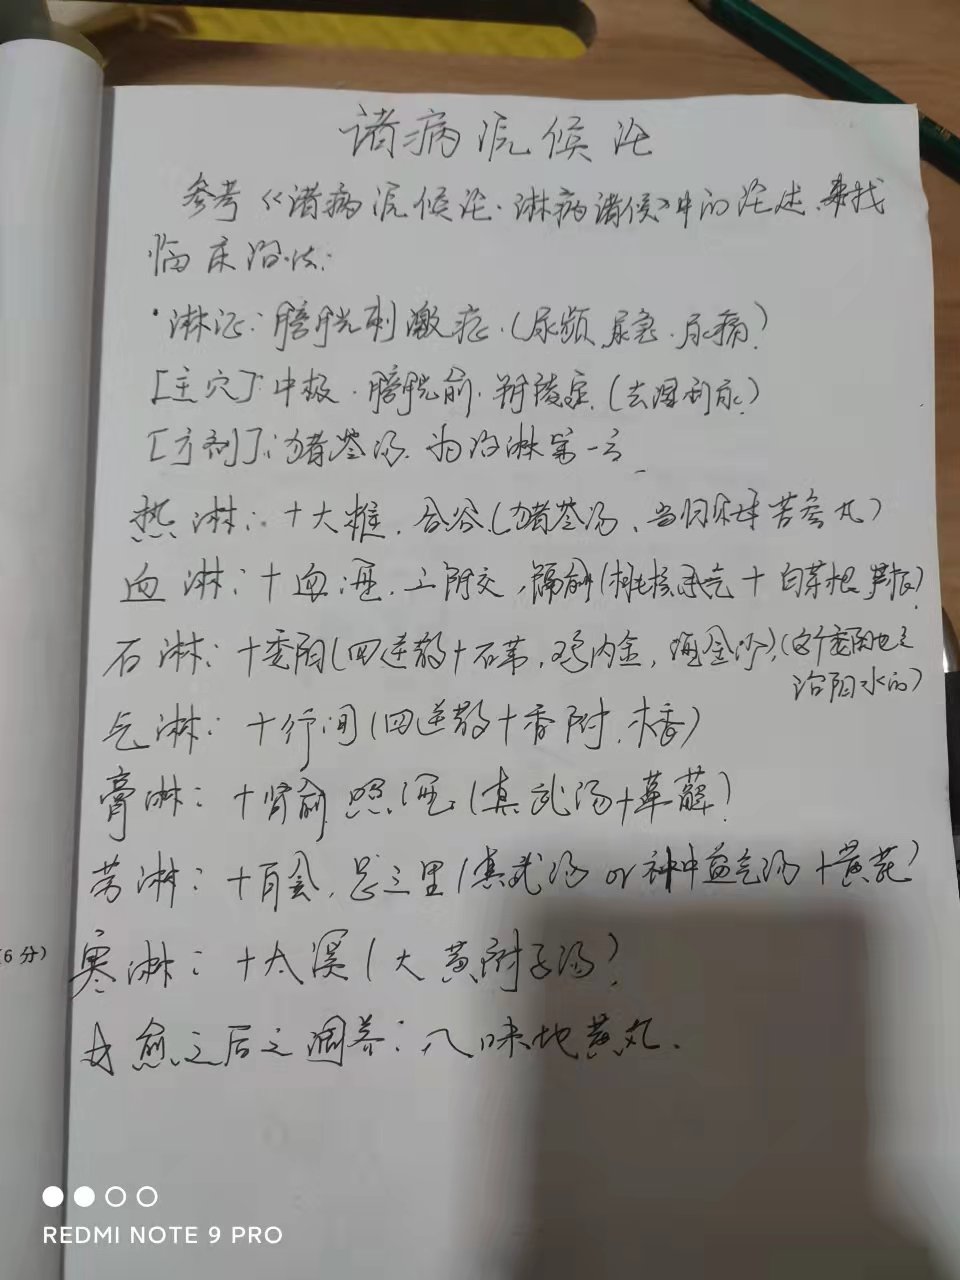 诸病源候论
参考《诸病源候论·淋病诸候》中的论述,寻找
临床治法:
·淋证:膀胱刺激症.(尿频,尿急.尿痛)
[主穴]:中极.膀胱俞.阴陵泉.(去湿利水)
[方剂]:猪苓汤.为治淋第一方
热淋:+大椎.合谷(猪苓汤、当归贝母苦参丸)
血淋:+血海.三阴交,膈俞(桃核承气+白茅根 芦根)
石淋:+委阳(四逆散+石苇,鸡内金,海金沙)(这个委阳也是
治阳水的)
气淋:+行间(四逆散+香附.木香)
膏淋:+肾俞 照海(真武汤+萆薢)
劳淋:+百会.足三里(真武汤 or 补中益气汤+黄芪)
寒淋:+太溪(大黄附子汤)
愈之后之调养:八味地黄丸.
(6分)
REDMI NOTE 9 PRO